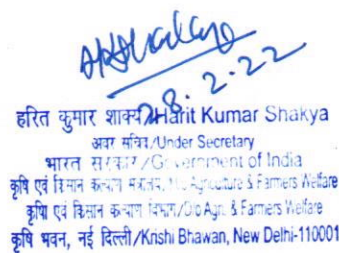 28.2.22
हरित कुमार शाक्य/Harit Kumar Shakya
अवर सचिव/Under Secretary
भारत सरकार/Government of India
कृषि एवं किसान कल्याण मंत्रालय/M/o Agriculture & Farmers Welfare
कृषि एवं किसान कल्याण विभाग/D/o Agri. & Farmers Welfare
कृषि भवन, नई दिल्ली/Krishi Bhawan, New Delhi-110001